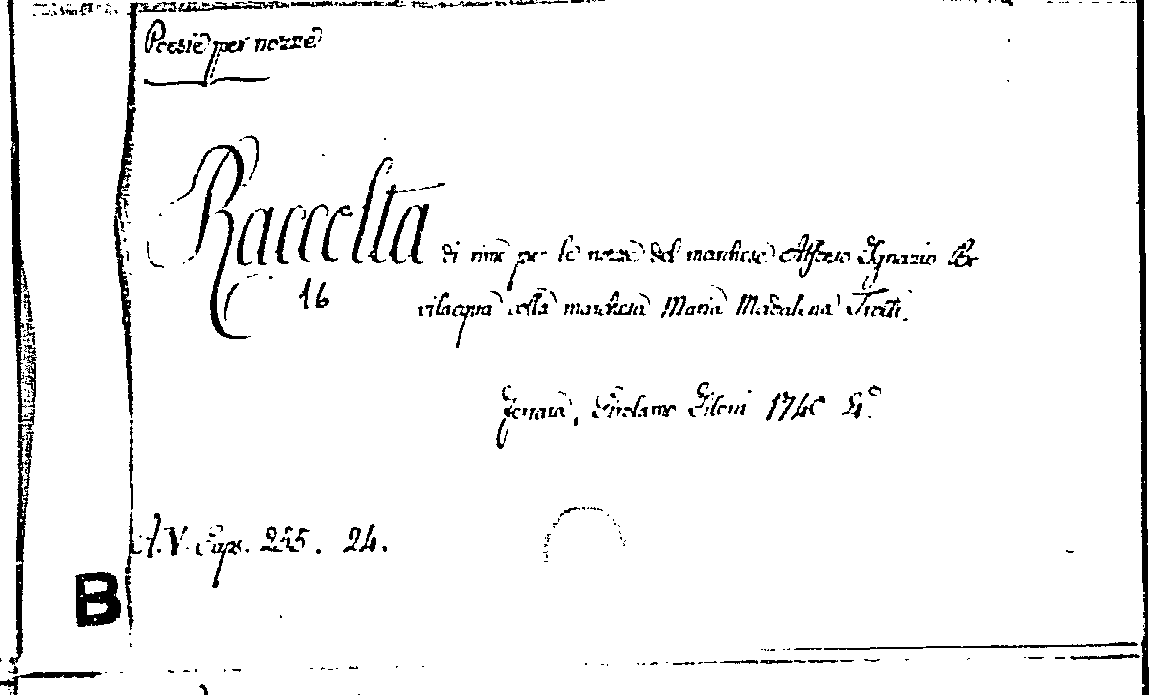 Poesie per nozze
Raccolta di rime per le nozze del marchese Alfonso Ignazio Be
16
vilacqua colla marchesa Maria Madalena Trotti.
Ferrara, Girolamo Filoni 1740 4.°
A.V. Caps. 255. 24.
B